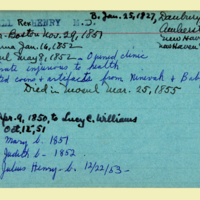 LL Rev HENRY M.D. B. Jan. 25, 1827, Danbury
Amherst
New Haven
New Haven
- Boston Nov. 29, 1851
na Jan. 16, 1852
ul May 8, 1852 - Opened clinic
ate injurious to health
ted coins & artifacts from Ninevah & Bab
Died in Mosul Mar. 25, 1855
Apr. 9, 1850, to Lucy C. Williams
Oct. 12, 51
Mary b. 1851
Judith b. - 1852
Julius Henry - b. 12/22/53 -